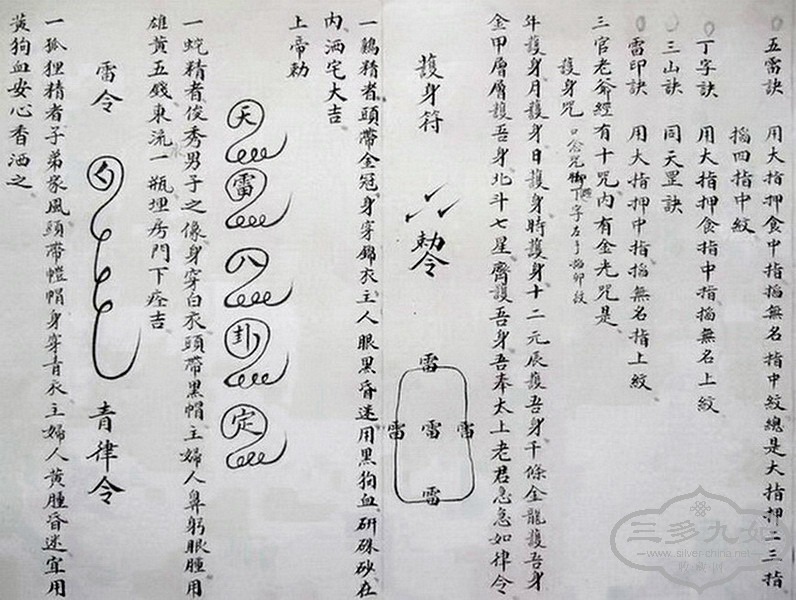 五雷訣　用大指押食中指掐無名指中紋總是大指押二三指
掐四指中紋
丁字訣　用大指押食指中指掐無名上紋
三山訣　同天罡訣
雷印訣　用大指押中指掐無名指上紋
三官老爺經有十咒內有金光咒是
護身咒
年護身月護身日護身時護身十二元辰護吾身千條金龍護吾身
金甲層層護吾身北斗七星齊護吾身吾奉太上老君急急如律令
護身符
敕令
雷
雷 雷 雷
雷
一鷄精者頭帶金冠身穿錦衣主人眼黑昏迷用黑狗血研硃砂在
內洒宅大吉
上帝勅
天
雷
八
卦
定
一蛇精者俊秀男子之像身穿白衣頭帶黑帽主婦人鼻躬眼腫用
雄黃五錢東流一瓶埋房門下痊吉
雷令
青律令
一狐狸精者子弟家風頭帶氊帽身穿青衣主婦人黃腫昏迷宜用
黃狗血安心香洒之
三多九如
www.silver-china.net
收藏網